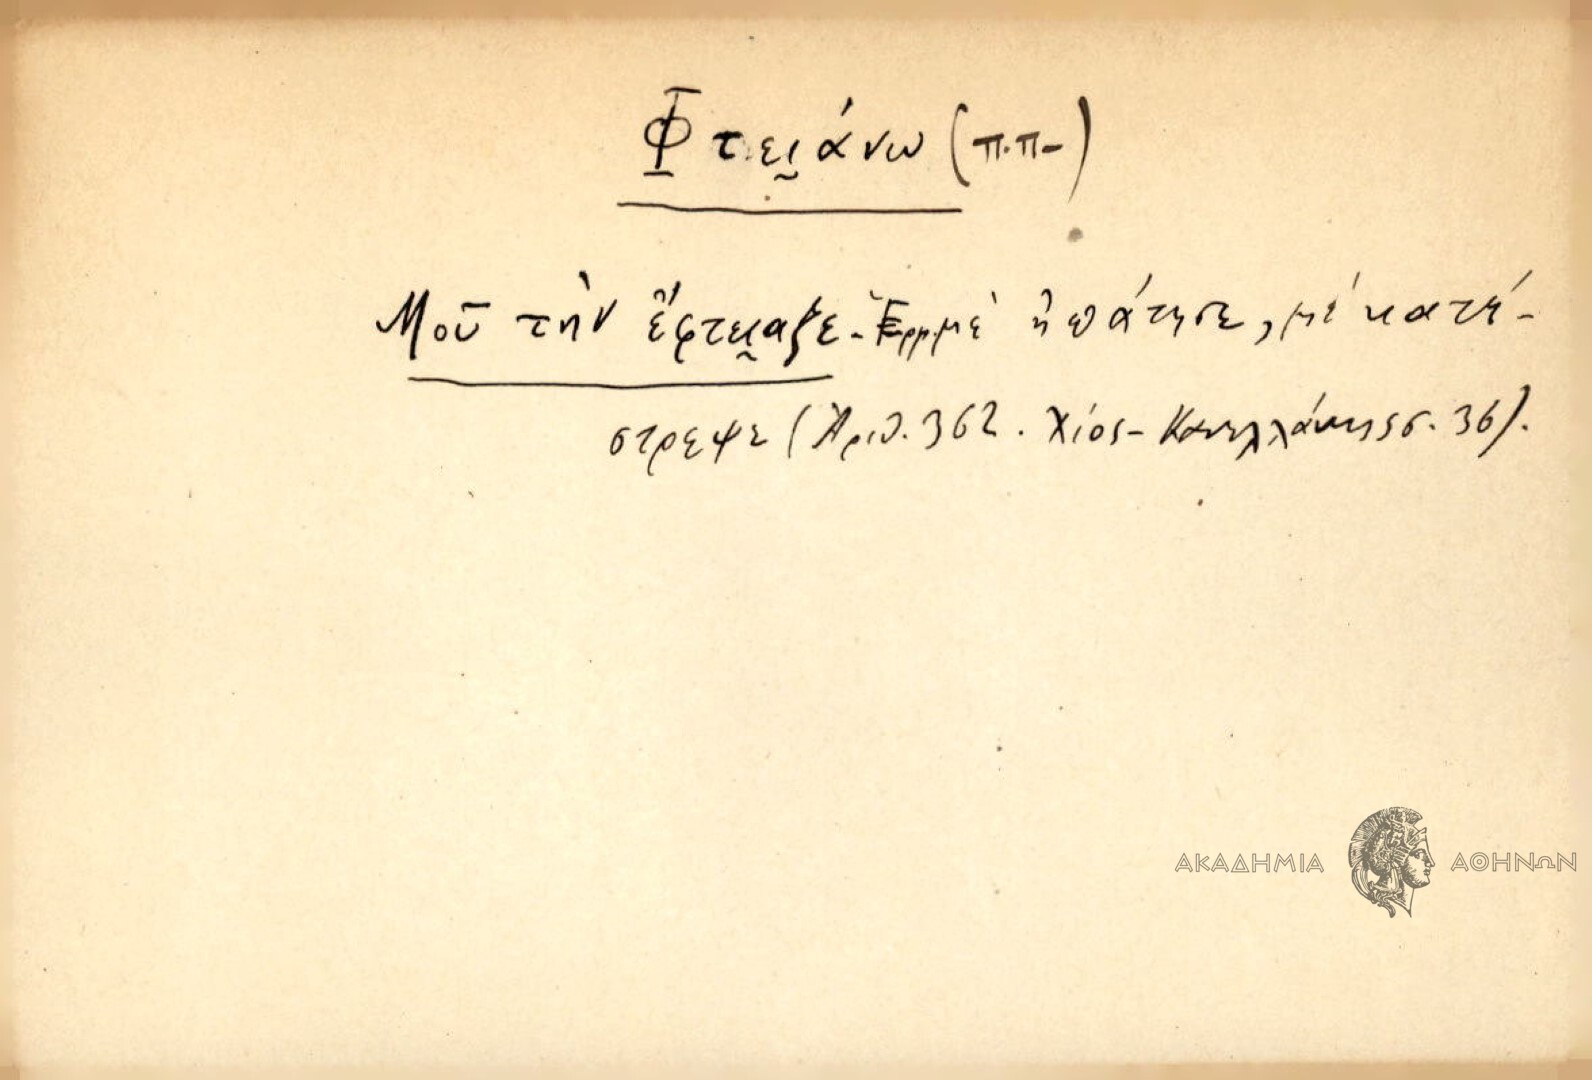 Φτει̯άνω (π.π-)
Μοῦ τὴν ἔφτει̯αξε. Ἑρμ. μὲ ἠπάτησε, μὲ κατέ-
στρεψε (Ἀριθ. 362. Χίος - Κανελλάκης σ. 36).
ΑΚΑΔΗΜΙΑ ΑΘΗΝΩΝ